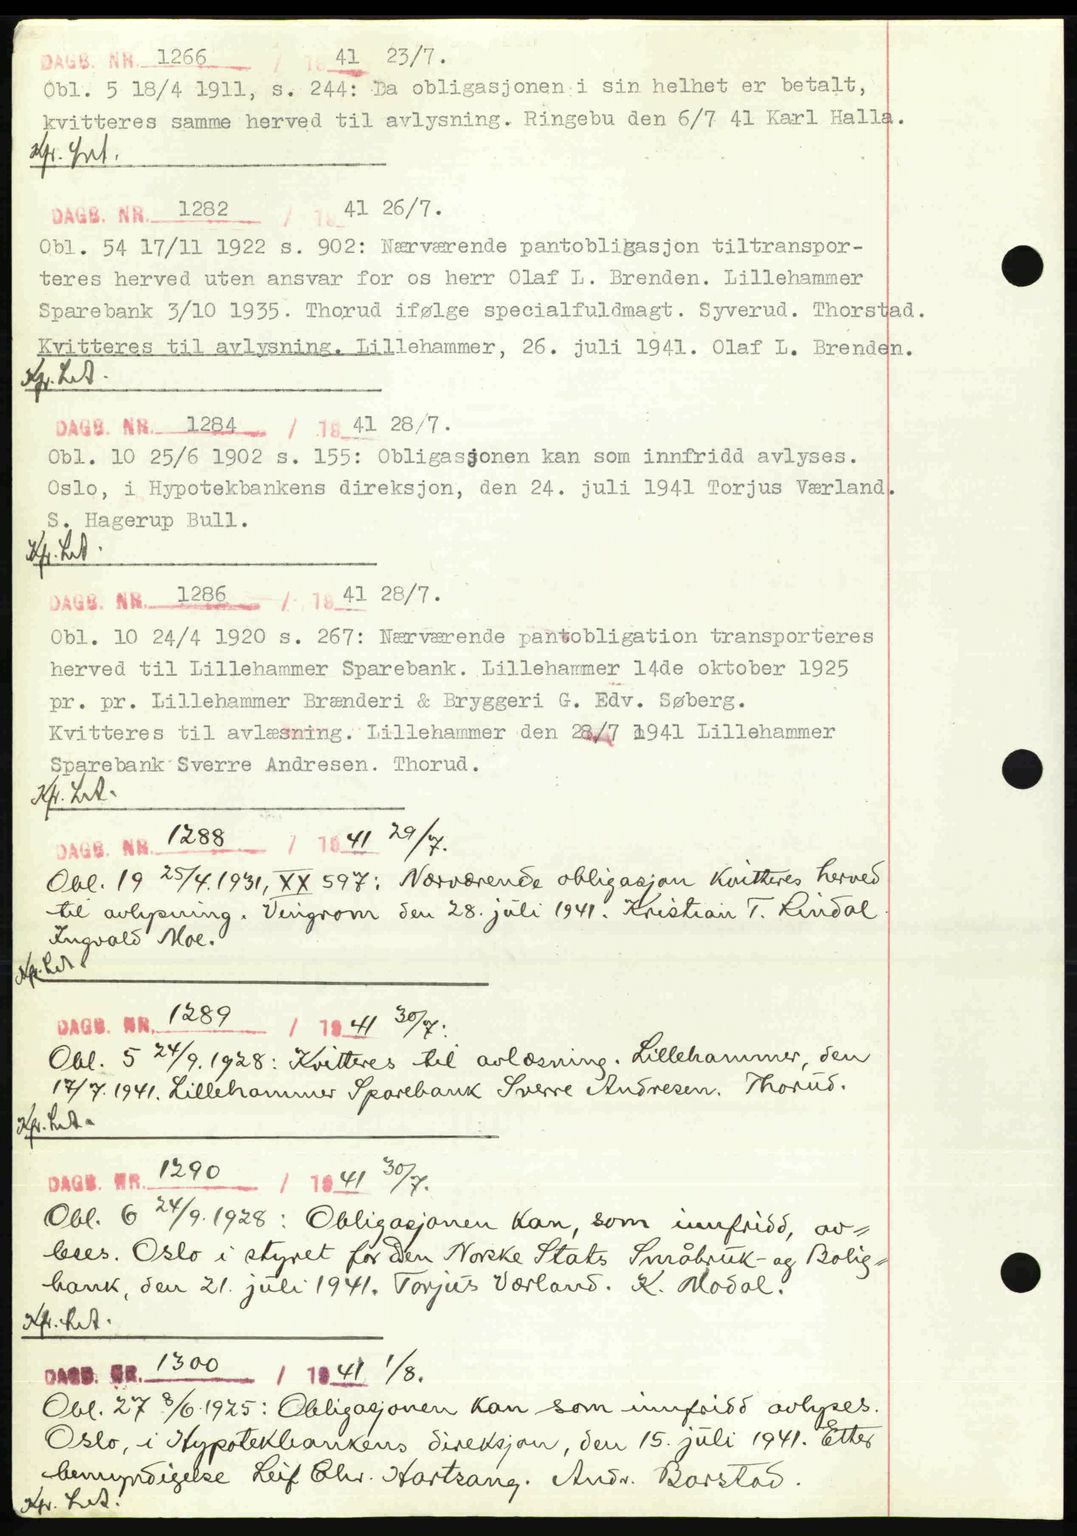 DAGB. NR. 1266 / 1941 23/7.
Obl. 5 18/4 1911, s. 244: Da obligasjonen i sin helhet er betalt,
kvitteres samme herved til avlysning. Ringebu den 6/7 41 Karl Halla.
Kfr.
DAGB. NR. 1282 / 1941 26/7.
Obl. 54 17/11 1922 s. 902: Nærværende pantobligasjon tiltranspor-
teres herved uten ansvar for os herr Olaf L. Brenden. Lillehammer
Sparebank 3/10 1935. Thorud ifølge specialfuldmagt. Syverud. Thorstad.
Kvitteres til avlysning. Lillehammer, 26. juli 1941. Olaf L. Brenden.
Kfr. LA.
DAGB. NR. 1284 / 1941 28/7.
Obl. 10 25/6 1902 s. 155: Obligasjonen kan som innfridd avlyses.
Oslo, i Hypotekbankens direksjon, den 24. juli 1941 Torjus Værland.
S. Hagerup Bull.
Kfr. LA.
DAGB. NR. 1286 / 1941 28/7.
Obl. 10 24/4 1920 s. 267: Nærværende pantobligation transporteres
herved til Lillehammer Sparebank. Lillehammer 14de oktober 1925
pr. pr. Lillehammer Brænderi & Bryggeri G. Edv. Søberg.
Kvitteres til avlæsning. Lillehammer den 28/7 1941 Lillehammer
Sparebank Sverre Andresen. Thorud.
Kfr. LA.
DAGB. NR. 1288 / 1941 29/7.
Obl. 19 25/4.1931, XX 597: Nærværende obligasjon kvitteres herved
til avlysning. Vingrom den 28. juli 1941. Kristian T. Lindal.
Ingvald Moe.
Kfr. LA
DAGB. NR. 1289 / 1941 30/7:
Obl. 5 24/9.1928: Kvitteres til avlæsning. Lillehammer, den
17/7.1941. Lillehammer Sparebank Sverre Andresen. Thorud.
Kfr. LA.
DAGB. NR. 1290 / 1941 30/7.
Obl. 6 24/9.1928: Obligasjonen kan, som innfridd, av=
leses. Oslo i styret for Den Norske Stats Småbruk- og Bolig=
bank, den 21. juli 1941. Torjus Værland. K. Modal.
Kfr. LA.
DAGB. NR. 1300 / 1941 1/8.
Obl. 27 8/6.1925: Obligasjonen kan som innfridd avlyses.
Oslo, i Hypotekbankens direksjon, den 15. juli 1941. Etter
bemyndigelse Leif Chr. Hartsang. Andr. Borstad.
Kfr. LA.